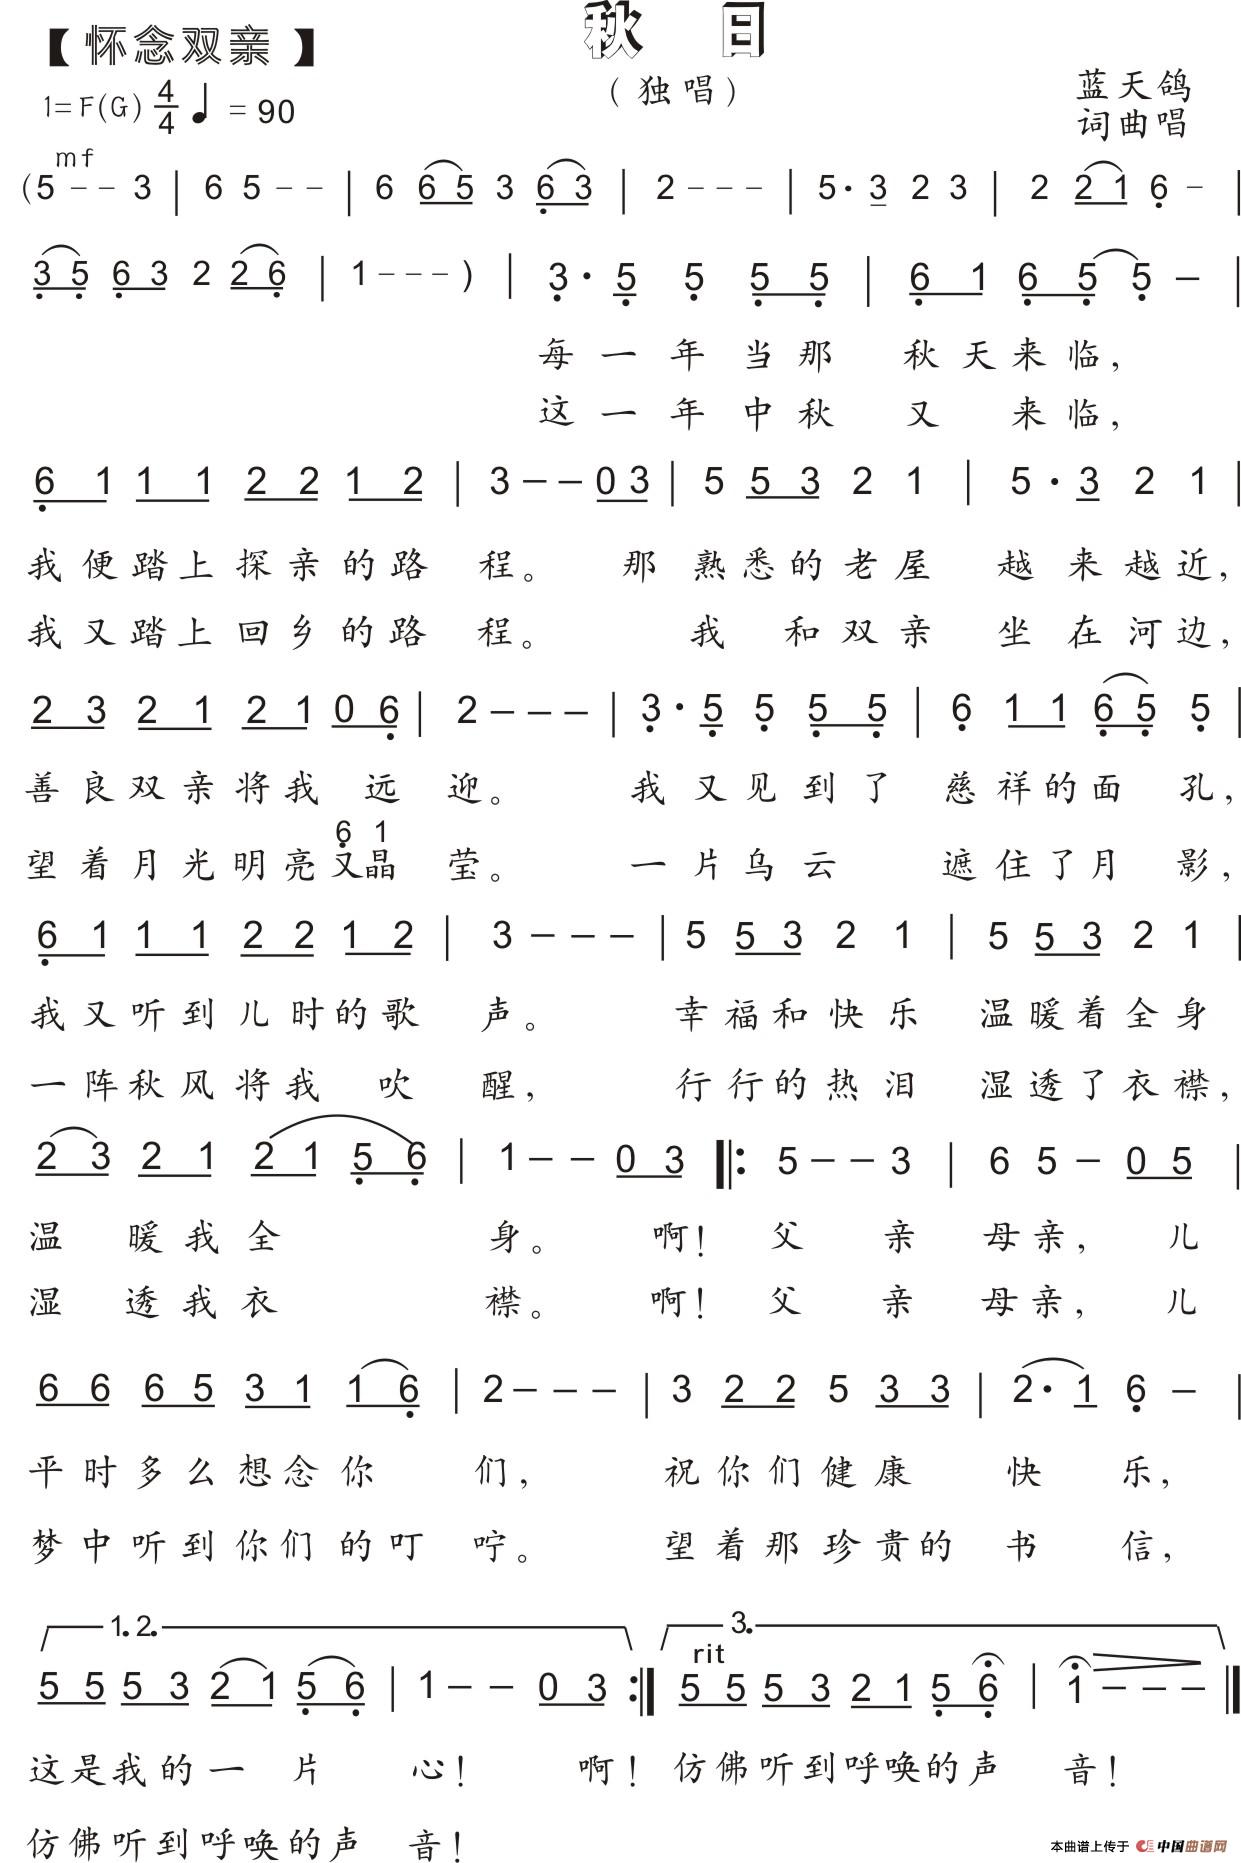 【怀念双亲】
秋 日
(独唱)
1=F(G) 4/4 ♩= 90
蓝天鸽
词曲唱
mf
(5 - - 3 | 6 5 - - | 6 6 5 3 6 3 | 2 - - - | 5· 3 2 3 | 2 2 1 6 - |
3 5 6 3 2 2 6 | 1 - - - ) | 3· 5 5 5 5 | 6 1 6 5 5 - |
每一年当那 秋天来临,
这一年中秋 又来临,
6 1 1 1 2 2 1 2 | 3 - - 0 3 | 5 5 3 2 1 | 5· 3 2 1 |
我便踏上探亲的路程。 那熟悉的老屋 越来越近,
我又踏上回乡的路程。 我和双亲 坐在河边,
2 3 2 1 2 1 0 6 | 2 - - - | 3· 5 5 5 5 | 6 1 1 6 5 5 |
善良双亲将我远迎。 我又见到了 慈祥的面孔,
6 1
望着月光明亮又晶莹。 一片乌云 遮住了月影,
6 1 1 1 2 2 1 2 | 3 - - - | 5 5 3 2 1 | 5 5 3 2 1 |
我又听到儿时的歌声。 幸福和快乐 温暖着全身
一阵秋风将我吹醒, 行行的热泪 湿透了衣襟,
2 3 2 1 2 1 5 6 | 1 - - 0 3 |: 5 - - 3 | 6 5 - 0 5 |
温暖我全身。 啊! 父亲 母亲, 儿
湿透我衣襟。 啊! 父亲 母亲, 儿
6 6 6 5 3 1 1 6 | 2 - - - | 3 2 2 5 3 3 | 2· 1 6 - |
平时多么想念你们, 祝你们健康快乐,
梦中听到你们的叮咛。 望着那珍贵的书信,
1. 2. 3.
rit
5 5 5 3 2 1 5 6 | 1 - - 0 3 :| 5 5 5 3 2 1 5 6 | 1 - - - |
这是我的一片心! 啊! 仿佛听到呼唤的声音!
仿佛听到呼唤的声音!
本曲谱上传于 中国曲谱网